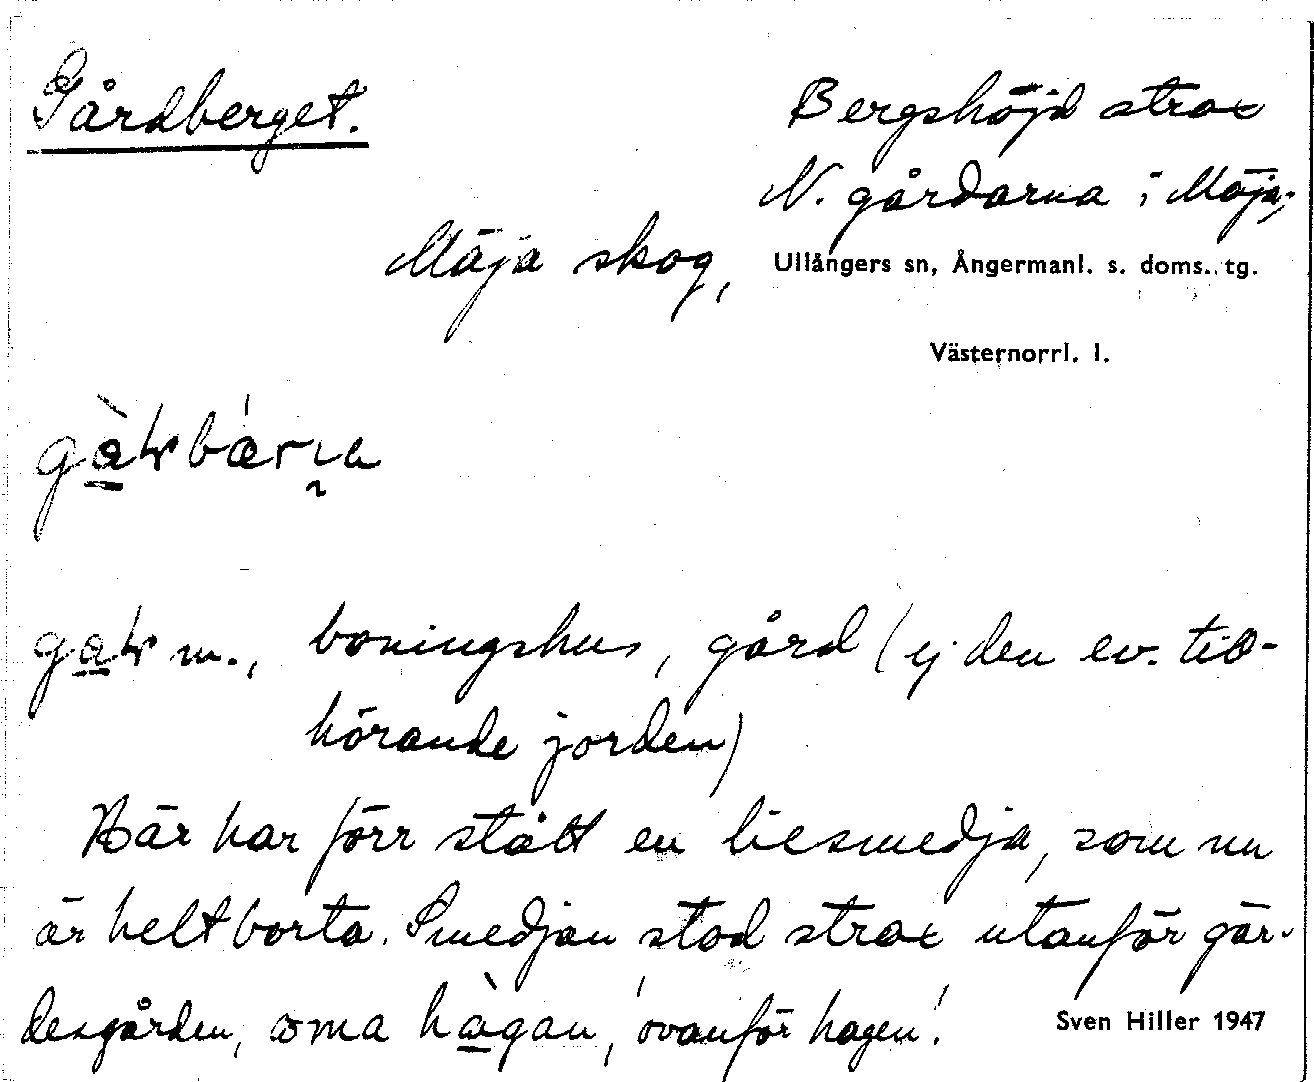 Gårdberget.
Bergshöjd strax
N. gårdarna i Mäja,
Mäja skog,
Ullångers sn, Ångermanl. s. doms. tg.
Västernorrl. l.
m., boningshus, gård (ej den ev. till-
hörande jorden)
Här har förr stått en liesmedja, som nu
är helt borta. Smedjan stod strax utanför gär-
desgården, hàgan, 'ovanför hagen'.
Sven Hiller 1947